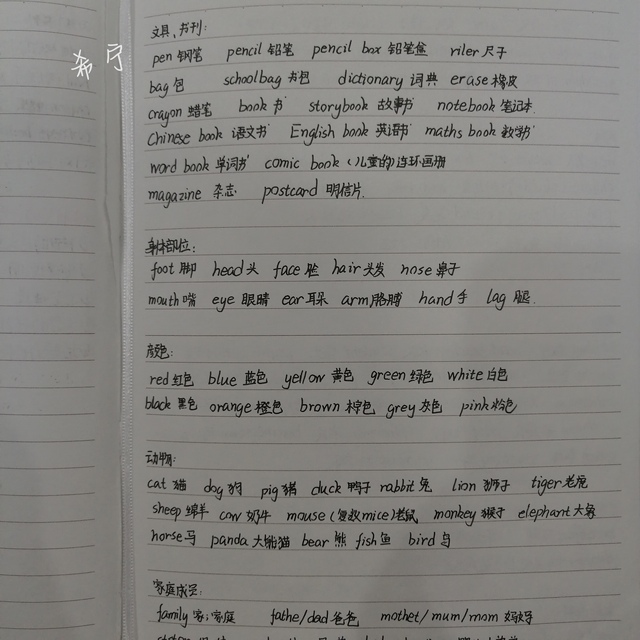 希宁
文具、书刊:
pen 钢笔 pencil 铅笔 pencil box 铅笔盒 riler 尺子
bag 包 schoolbag 书包 dictionary 词典 erase 橡皮
crayon 蜡笔 book 书 storybook 故事书 notebook 笔记本
Chinese book 语文书 English book 英语书 maths book 数学书
word book 单词书 comic book (儿童的)连环画册
magazine 杂志 postcard 明信片
身体部位:
foot 脚 head 头 face 脸 hair 头发 nose 鼻子
mouth 嘴 eye 眼睛 ear 耳朵 arm 胳膊 hand 手 lag 腿
颜色:
red 红色 blue 蓝色 yellow 黄色 green 绿色 white 白色
black 黑色 orange 橙色 brown 棕色 grey 灰色 pink 粉色
动物:
cat 猫 dog 狗 pig 猪 duck 鸭子 rabbit 兔 lion 狮子 tiger 老虎
sheep 绵羊 cow 奶牛 mouse (复数mice)老鼠 monkey 猴子 elephant 大象
horse 马 panda 大熊猫 bear 熊 fish 鱼 bird 鸟
家庭成员:
family 家;家庭 fathe/dad 爸爸 mothet/mum/mom 妈妈